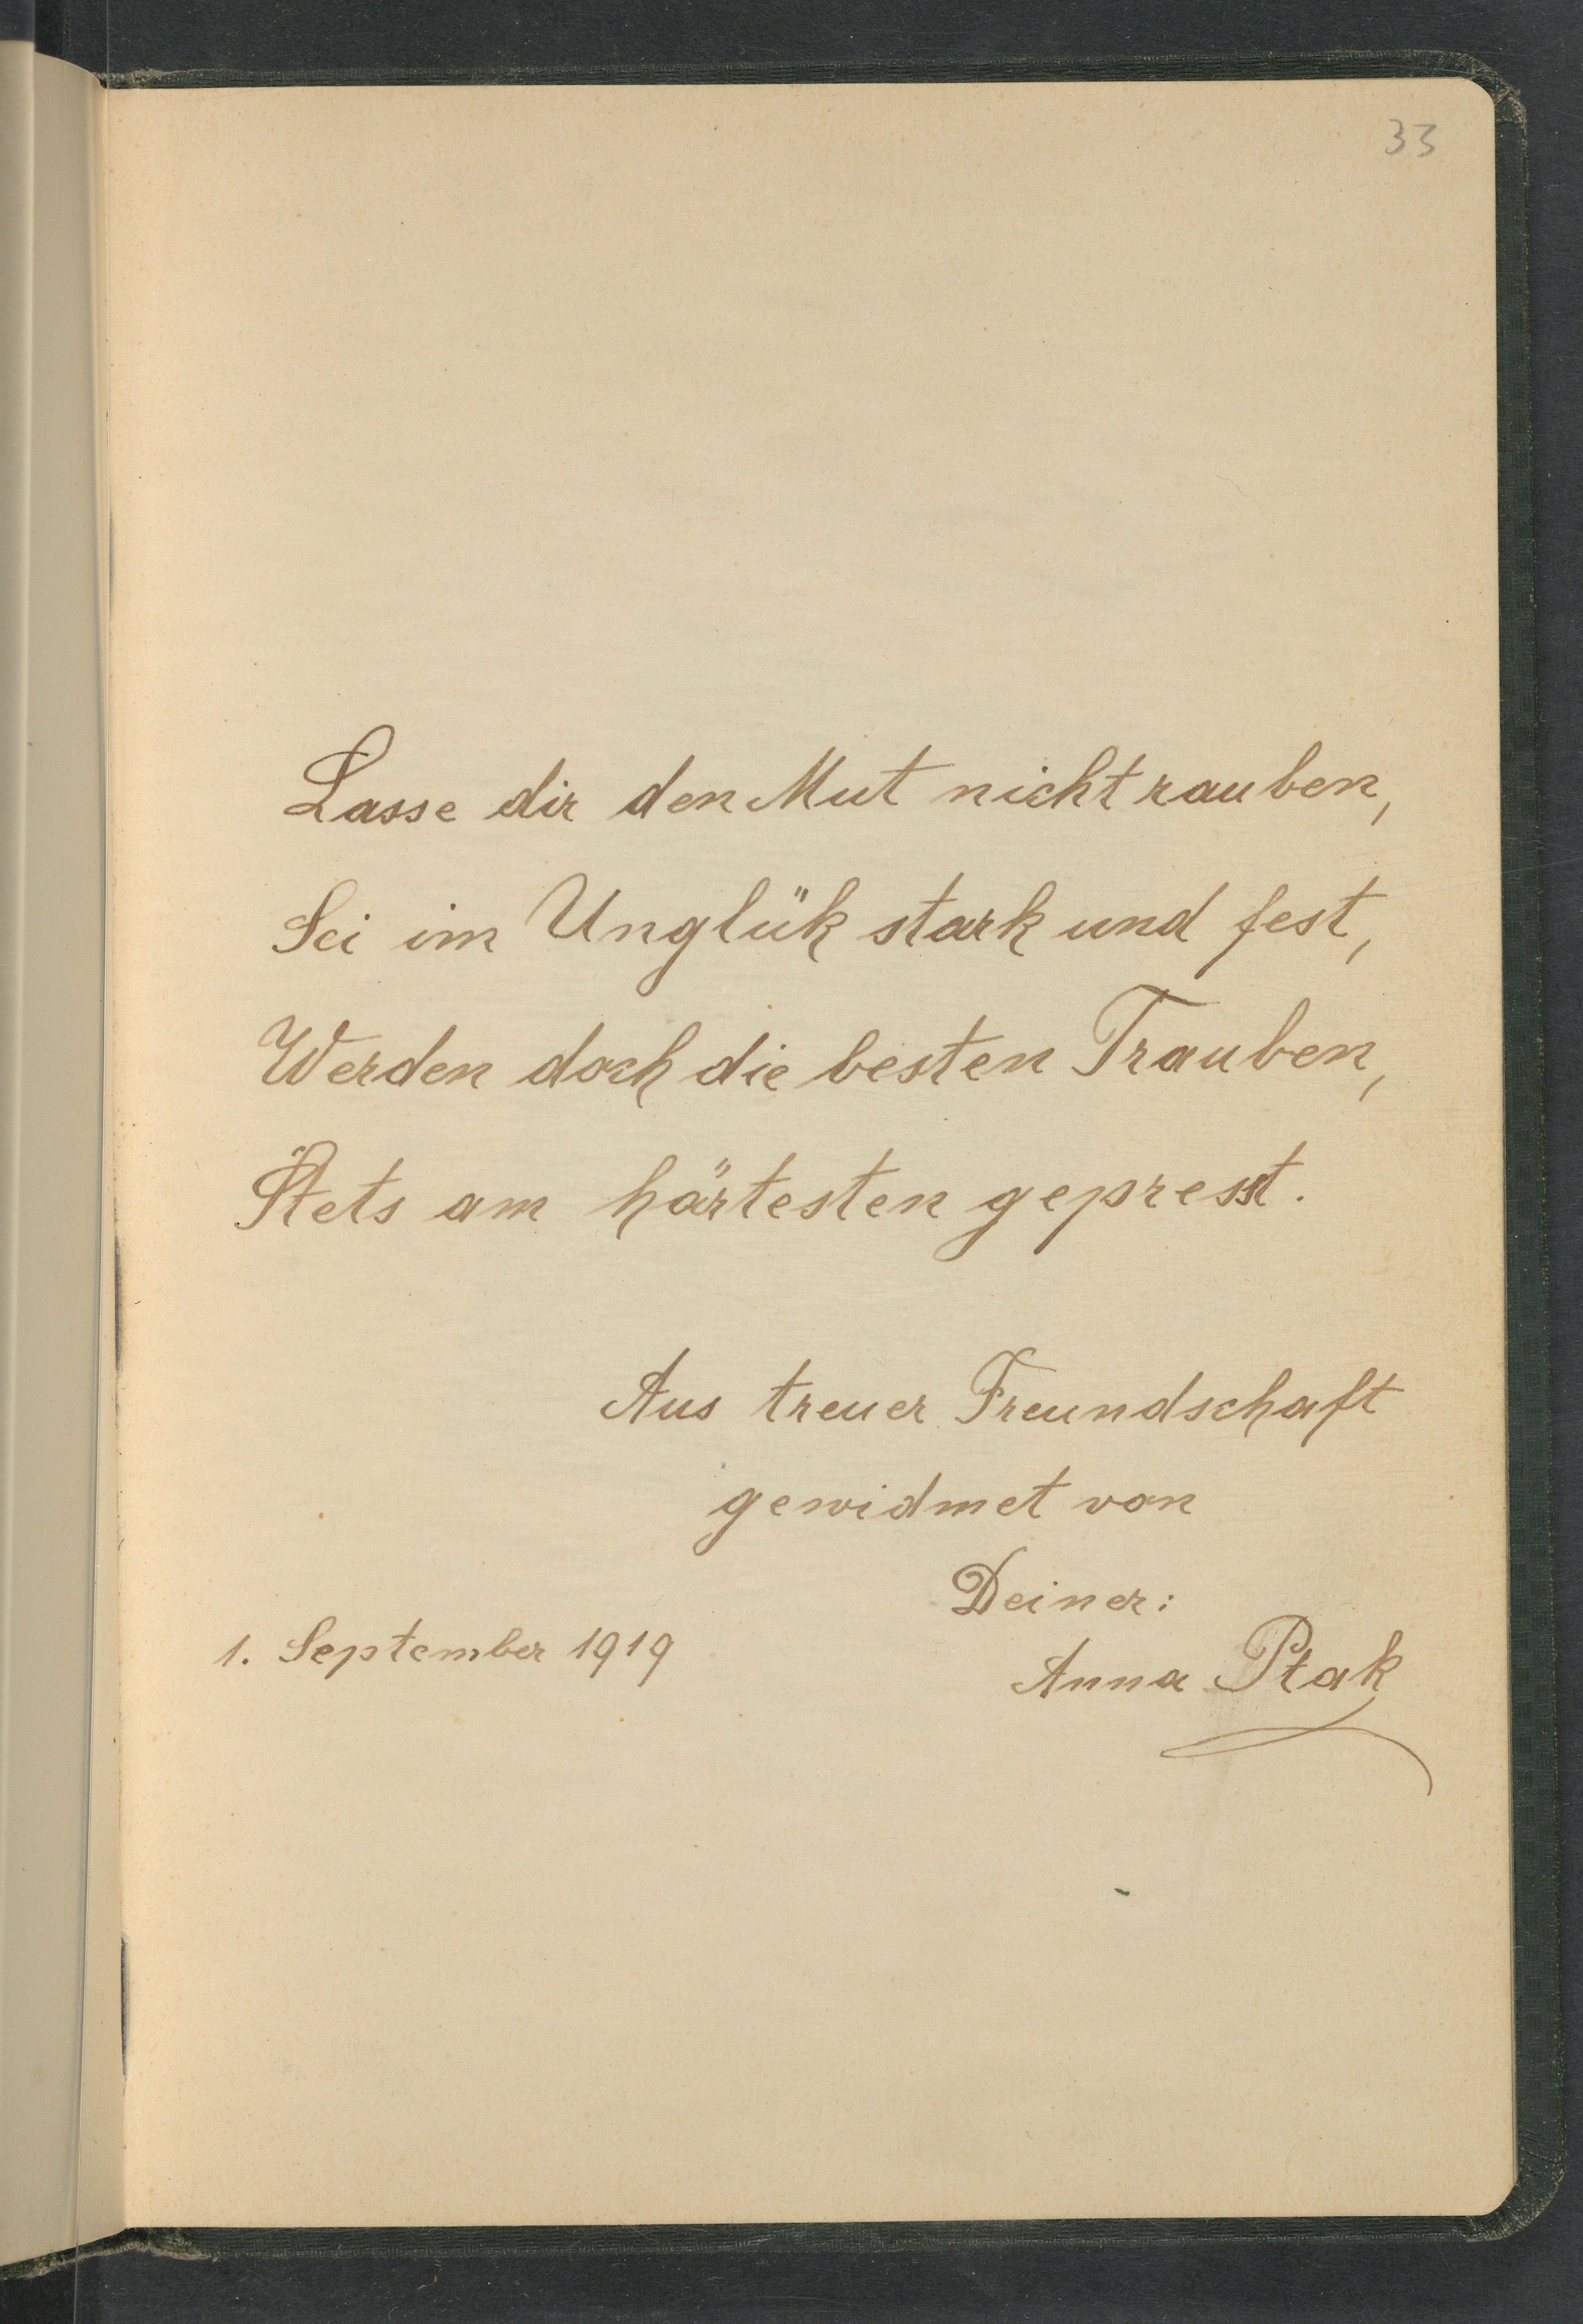 33
Lasse dir den Mut nicht rauben,
Sei im Unglük stark und fest,
Werden doch die besten Trauben,
Stets am härtesten gepresst.
Aus treuer Freundschaft
gewidmet von
Deiner:
1. September 1919
Anna Ptak